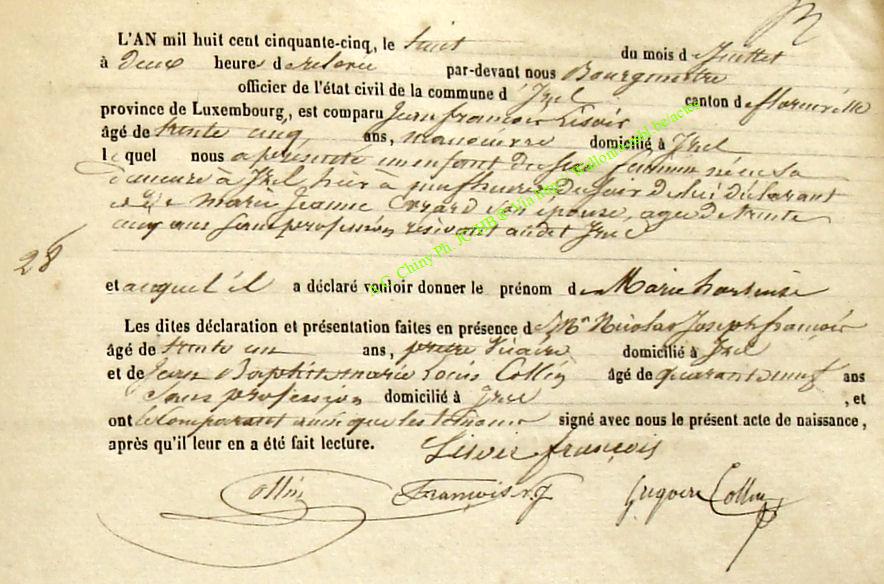 L'AN mil huit cent cinquante-cinq, le huit du mois de Juillet
à deux heures de relevée par-devant nous Bourgmestre
officier de l'état civil de la commune d'Izel canton de florenville
province de Luxembourg, est comparu Jean françois Lisoir
âgé de trente cinq ans, manoeuvre domicilié à Izel
lequel nous a présenté un enfant du sexe féminin né en sa
demeure à Izel hier à neuf heures du soir de lui déclarant
et de marie Jeanne son épouse, agée de trente
cinq ans sans profession résidant audit Izel
28
et auquel il a déclaré vouloir donner le prénom de Marie hortense
Les dites déclaration et présentation faites en présence de Mr Nicolas Joseph françois
âgé de trente un ans, prêtre vicaire domicilié à Izel
et de Jean Baptiste marie Louis Collin âgé de quarante neuf ans
sans profession domicilié à Izel, et
ont le Comparant ainsi que les témoins signé avec nous le présent acte de naissance,
après qu'il leur en a été fait lecture. Lisoir françois
Collin François Collin